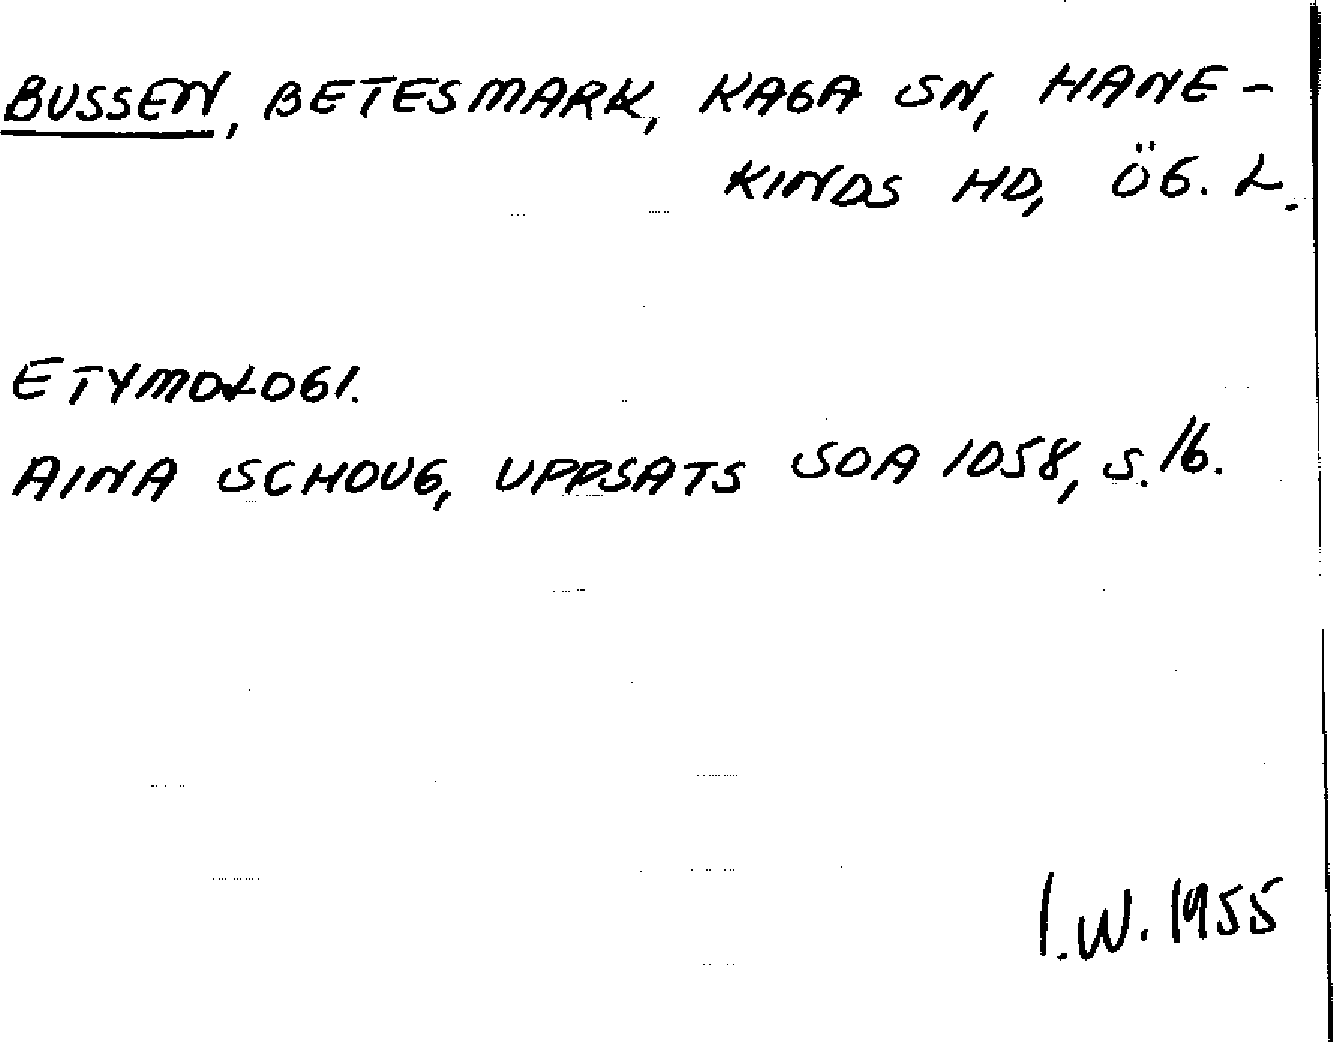 BUSSEN, BETESMARK, KAGA SN, HANE-
KINDS HD, ÖG. L.
ETYMOLOGI.
AINA SCHOUG, UPPSATS SOA 1058, S. 16.
I.W. 1955